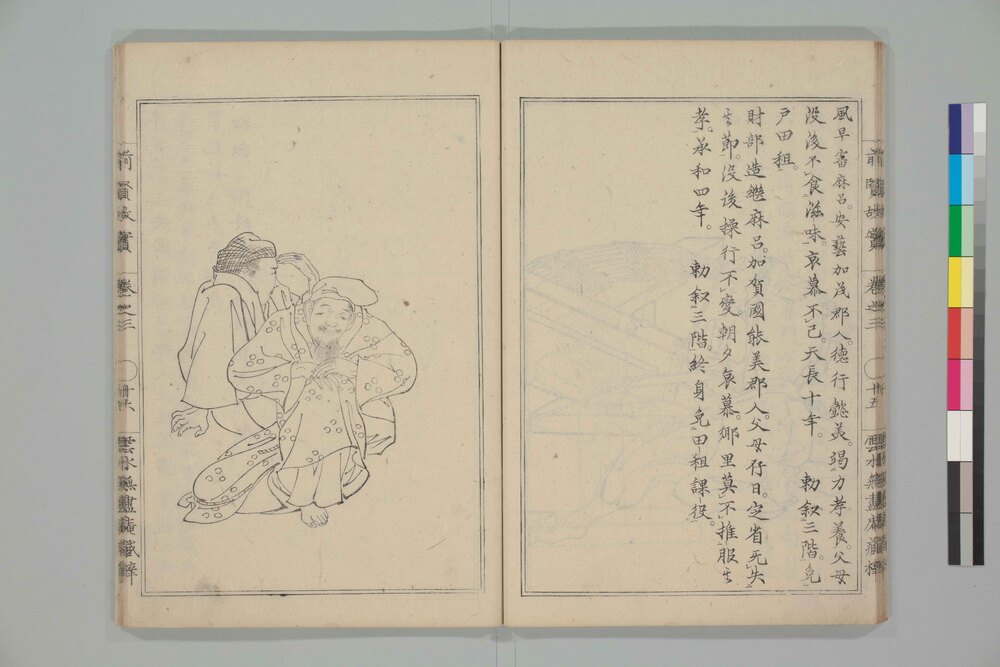 風早審麻呂。安藝加茂郡人。德行懿美。竭力孝養。父母
没後不食滋味。哀慕不已。天長十年。　勅叙三階。免
戸田租。
財部造繼麻呂。加賀國能美郡人。父母存日。定省无失
其節。没後操行不變。朝夕哀慕。鄉里莫不推服其
孝。承和四年。　勅叙三階。終身免田租課役。
前賢故實　卷之三　廿五　雲水無盡庵藏梓
前賢故實　卷之三　廿六　雲水無盡庵藏梓